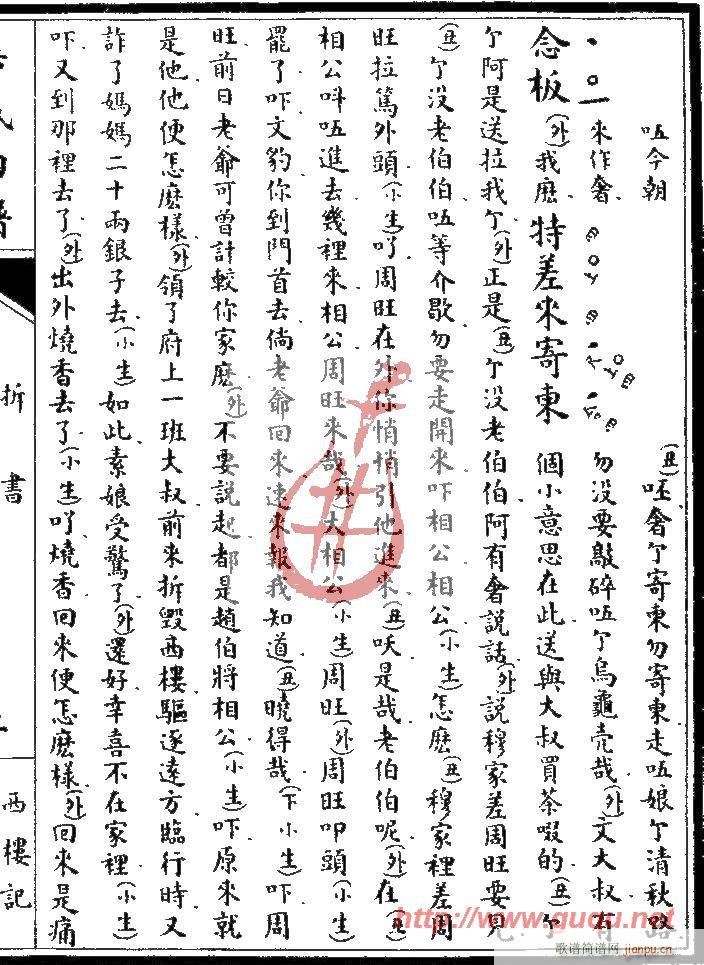 㕶今朝
來作奢
(丑)呸奢亇寄柬勿寄柬走㕶娘亇清秋
勿没要敲碎㕶亇烏龜壳哉(外)文大叔有
念板(外)我麽特差來寄柬個小意思在此送與大叔買茶啜的(丑)
亇阿是送拉我亇(外)正是(丑)亇没老伯伯阿有奢説話(外)説穆家差周旺要見
(丑)亇没老伯伯㕶等介歇勿要走開來吓相公相公(小生)怎麽(丑)穆家裡差周
旺拉篤外頭(小生)吖周旺在外你悄悄引他進來(丑)呅是哉老伯伯呢(外)在(丑)
相公呌㕶進去幾裡來相公周旺來哉(外)大相公(小生)周旺(外)周旺叩頭(小生)
罷了吓文豹你到門首去倘老爺回來速來報我知道(丑)曉得哉(下小生)吓周
旺前日老爺可曾計較你家麽(外)不要説起都是趙伯將相公(小生)吓原來就
是他他便怎麽樣(外)領了府上一班大叔前來折毀西樓驅逐遠方臨行時又
詐了媽媽二十兩銀子去(小生)如此素娘受驚了(外)還好幸喜不在家裡(小生)
吓又到那裡去了(外)出外燒香去了(小生)吖燒香回來便怎麽樣(外)回來是痛
折書
西樓記
http://www.guqu.net
歌谱简谱网
jianpu.cn